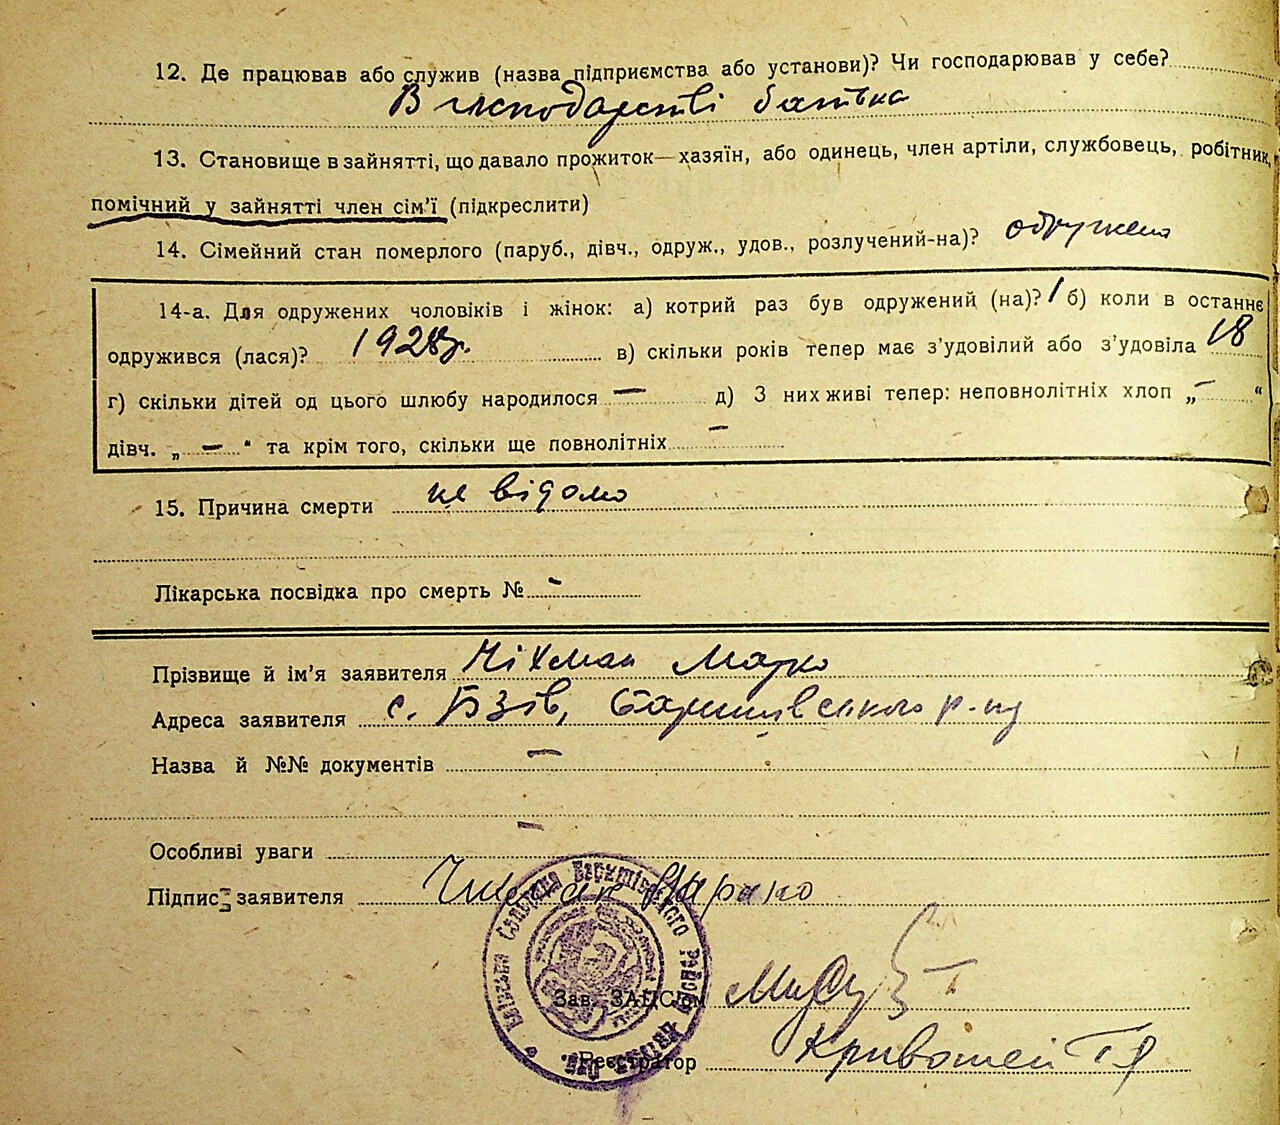 12. Де працював або служив (назва підприємства або установи)? Чи господарював у себе?
В господарстві батька
13. Становище в зайнятті, що давало прожиток—хазяїн, або одинець, член артіли, службовець, робітник,
помічний у зайнятті член сім'ї (підкреслити)
14. Сімейний стан померлого (паруб., дівч., одруж., удов., розлучений-на)? одружена
14-а. Для одружених чоловіків і жінок: а) котрий раз був одружений (на)? 1 б) коли в останнє
одружився (лася)? 1928р. в) скільки років тепер має з'удовілий або з'удовіла 18
г) скільки дітей од цього шлюбу народилося — д) З них живі тепер: неповнолітніх хлоп „ — “
дівч. „ — “ та крім того, скільки ще повнолітніх —
15. Причина смерти не відомо
Лікарська посвідка про смерть № —
Прізвище й ім'я заявителя Чіхман Марко
Адреса заявителя с. Бзів, Баришівського р-ну
Назва й №№ документів —
Особливі уваги —
Підпис заявителя Марко
Зав. ЗАГСом
Реєстратор Кривошей